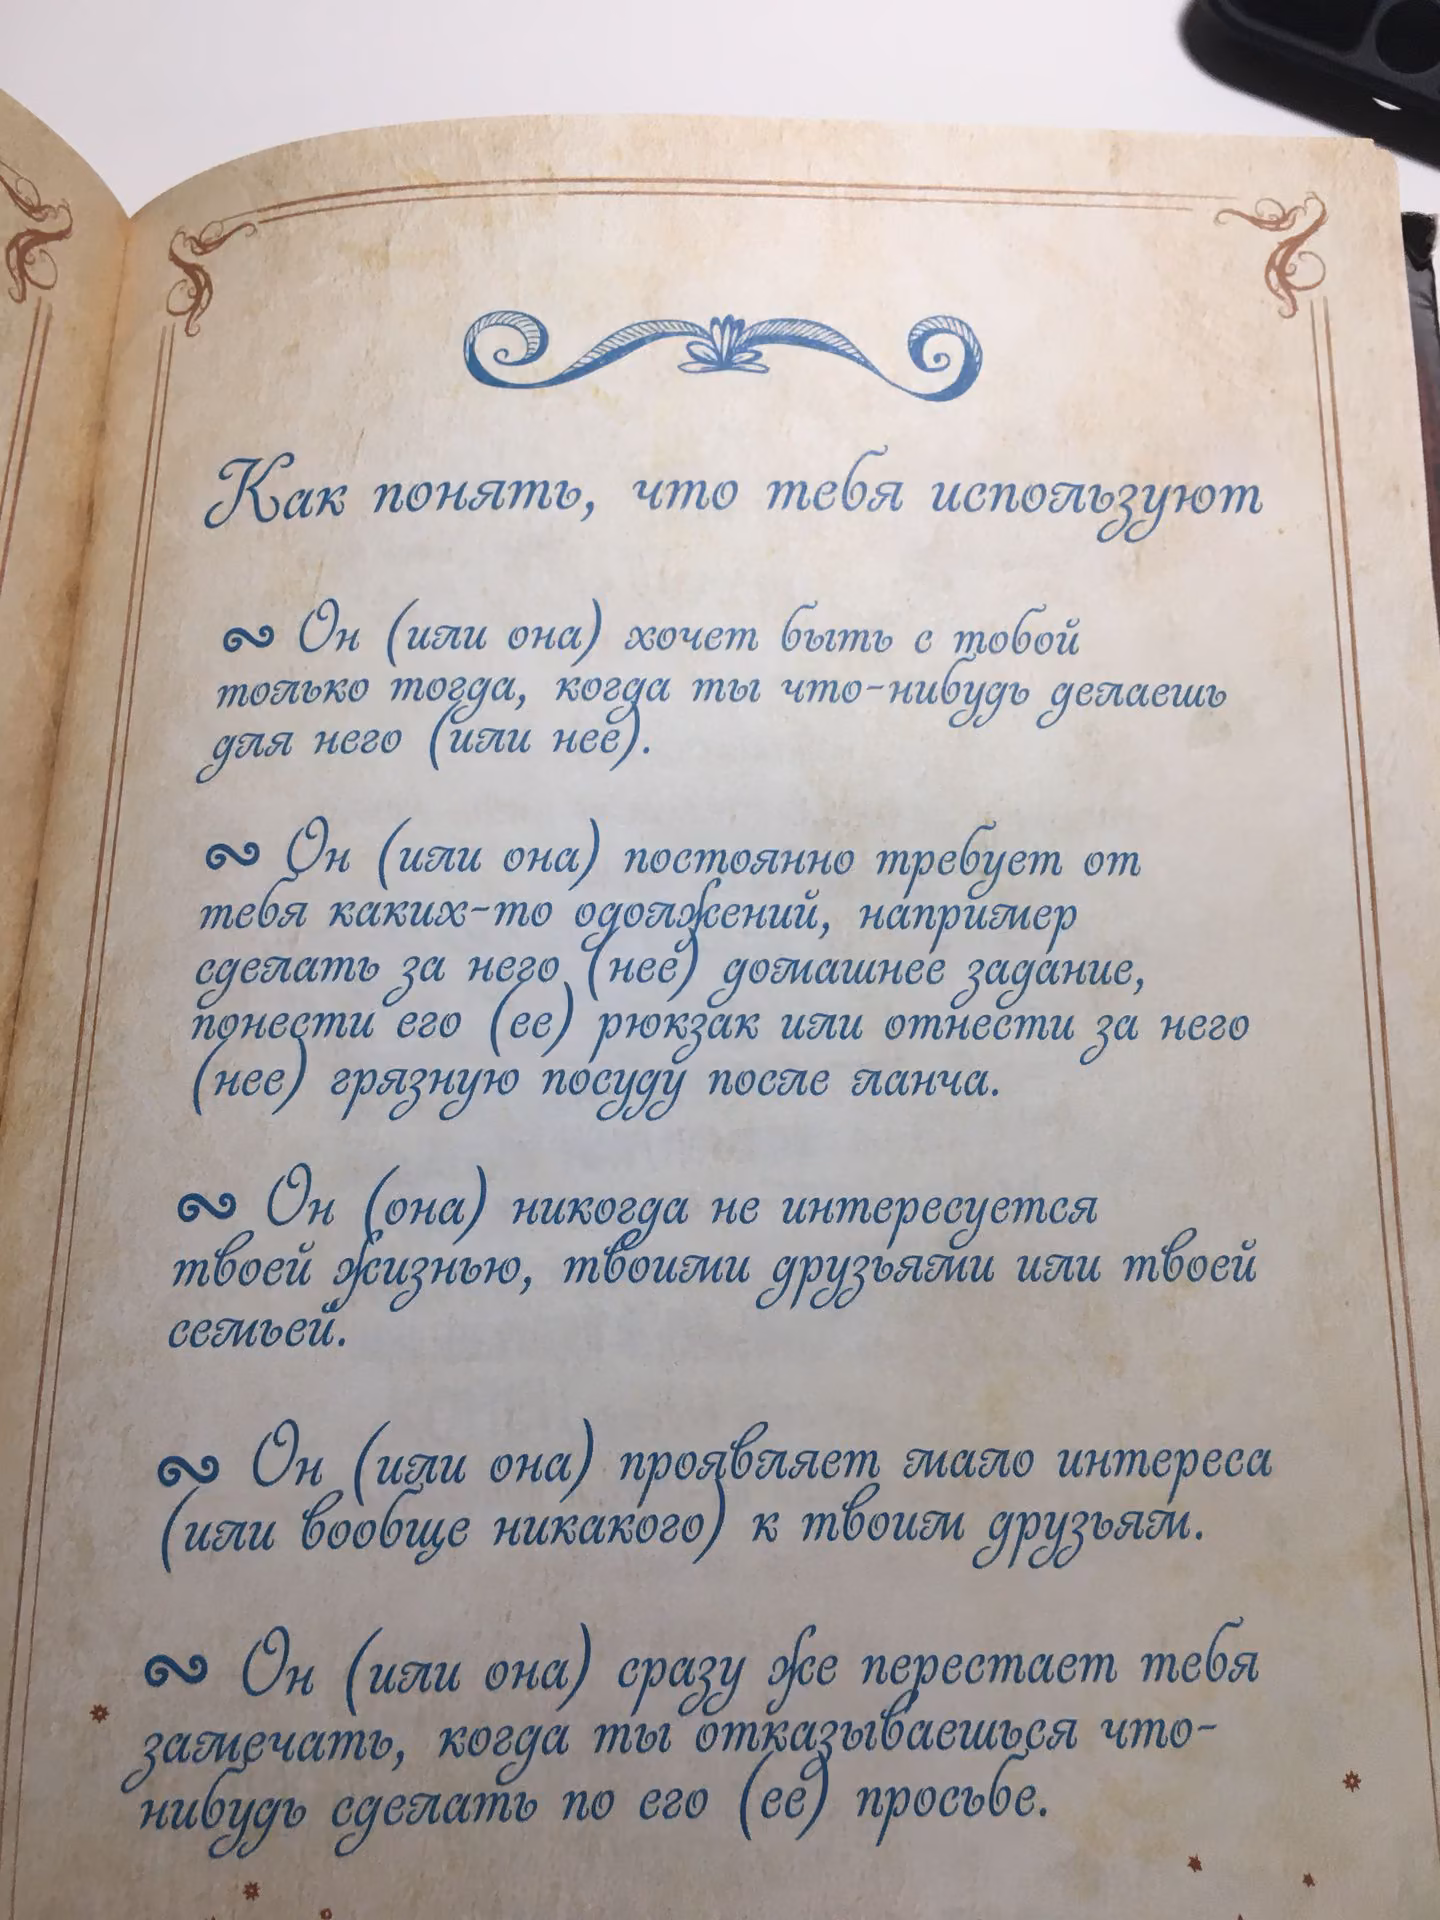 Как понять, что тебя используют
~ Он (или она) хочет быть с тобой
только тогда, когда ты что-нибудь делаешь
для него (или нее).
~ Он (или она) постоянно требует от
тебя каких-то одолжений, например
сделать за него (нее) домашнее задание,
понести его (ее) рюкзак или отнести за него
(нее) грязную посуду после ланча.
~ Он (она) никогда не интересуется
твоей жизнью, твоими друзьями или твоей
семьей.
~ Он (или она) проявляет мало интереса
(или вообще никакого) к твоим друзьям.
~ Он (или она) сразу же перестает тебя
замечать, когда ты отказываешься что-
нибудь сделать по его (ее) просьбе.